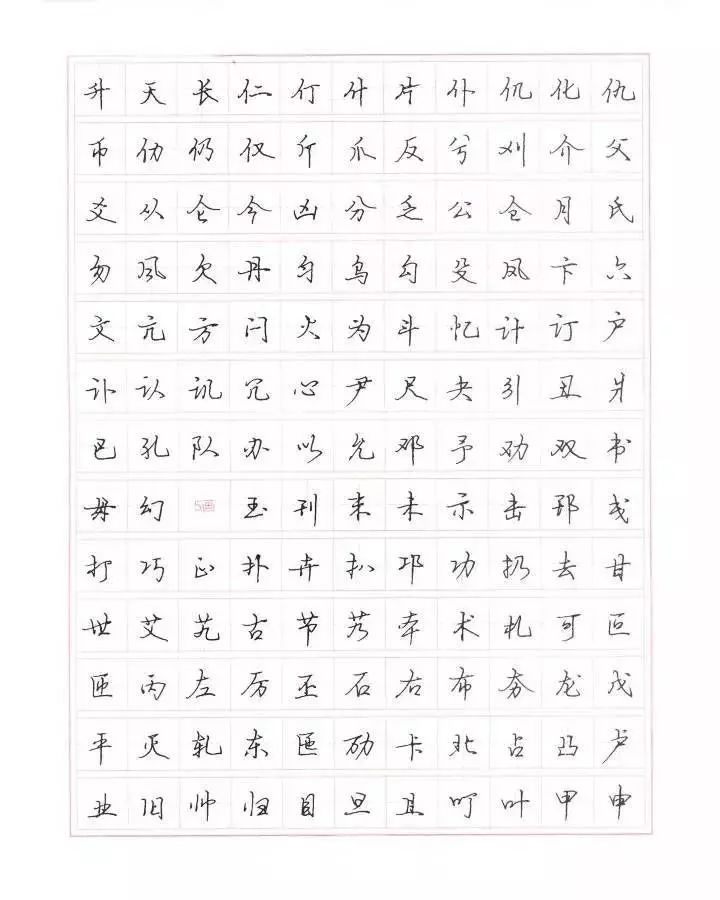 升夭长仁仃什片仆仉化仇
币仂仍仅斤爪反兮刈介父
爻从仑今凶分乏公仓月氏
勿风欠丹匀乌勾殳凤卞六
文亢方闩火为斗忆计订户
讣认讥冗心尹尺夬引丑爿
巴孔队办以允邓予劝双书
毋幻5画玉刊末未示击邗戋
打巧正扑卉扒邛功扔去甘
世艾艽古节艿本术札可叵
匝丙左厉丕石右布夯龙戊
平灭轧东匜劢卡北占凸卢
业旧帅归目旦且叮叶甲申